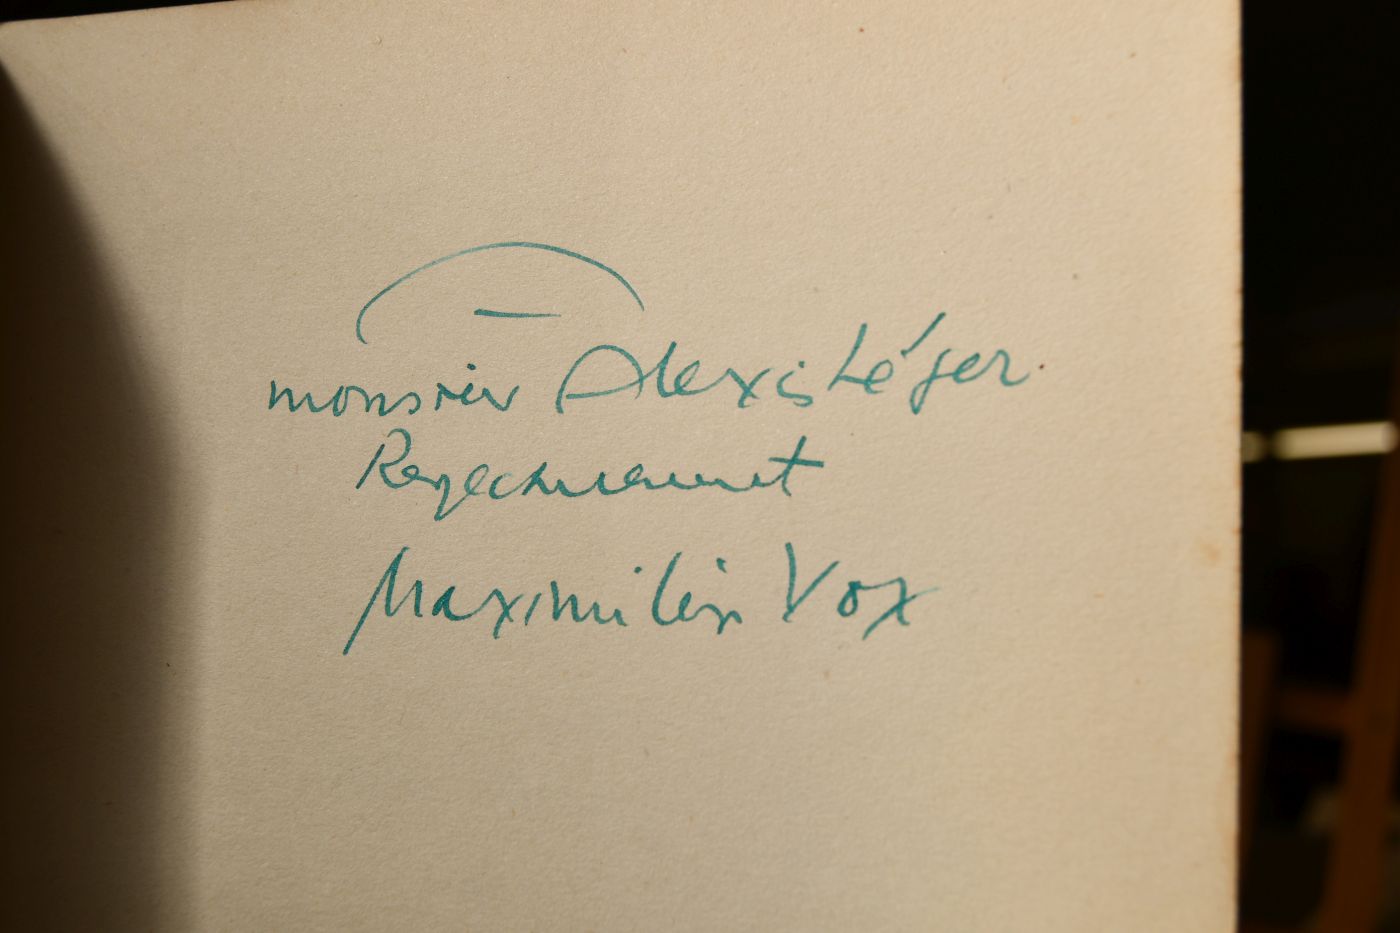 monsieur Alexis Léger
Respectueusement
Maximilien Vox